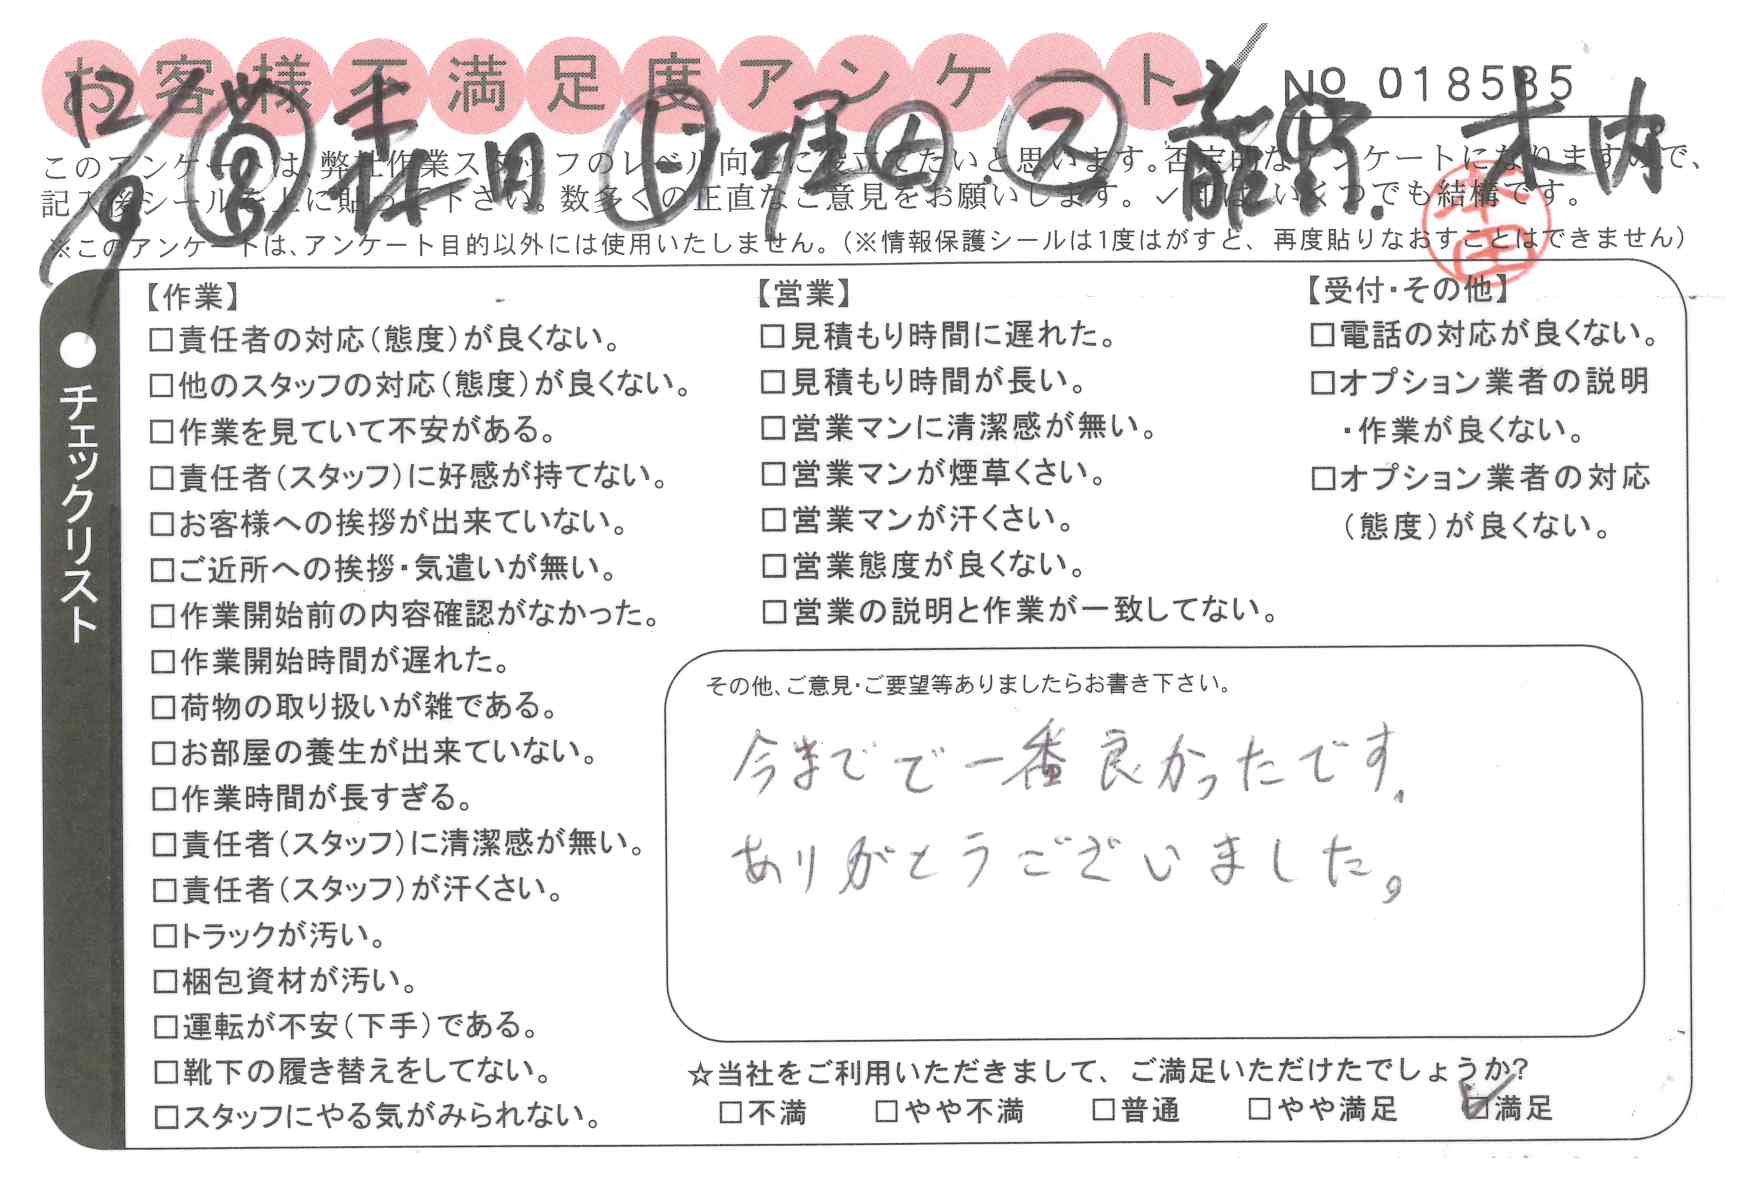 お客様不満足度アンケート
No 018585
12/9 営 本田 リーダー 堀内 ス 龍野. 木内
このアンケートは、弊社作業スタッフのレベル向上に役立てたいと思います。否定的なアンケートになりますので、
記入後シールを上に貼って下さい。数多くの正直なご意見をお願いします。✓印は、いくつでも結構です。
※このアンケートは、アンケート目的以外には使用いたしません。（※情報保護シールは1度はがすと、再度貼りなおすことはできません）
●チェックリスト
【作業】
□責任者の対応（態度）が良くない。
□他のスタッフの対応（態度）が良くない。
□作業を見ていて不安がある。
□責任者（スタッフ）に好感が持てない。
□お客様への挨拶が出来ていない。
□ご近所への挨拶・気遣いが無い。
□作業開始前の内容確認がなかった。
□作業開始時間が遅れた。
□荷物の取り扱いが雑である。
□お部屋の養生が出来ていない。
□作業時間が長すぎる。
□責任者（スタッフ）に清潔感が無い。
□責任者（スタッフ）が汗くさい。
□トラックが汚い。
□梱包資材が汚い。
□運転が不安（下手）である。
□靴下の履き替えをしてない。
□スタッフにやる気がみられない。
【営業】
□見積もり時間に遅れた。
□見積もり時間が長い。
□営業マンに清潔感が無い。
□営業マンが煙草くさい。
□営業マンが汗くさい。
□営業態度が良くない。
□営業の説明と作業が一致してない。
【受付・その他】
□電話の対応が良くない。
□オプション業者の説明
・作業が良くない。
□オプション業者の対応
（態度）が良くない。
その他、ご意見・ご要望等ありましたらお書き下さい。
今までで一番良かったです。
ありがとうございました。
☆当社をご利用いただきまして、ご満足いただけたでしょうか?
□不満 □やや不満 □普通 □やや満足 ☑満足